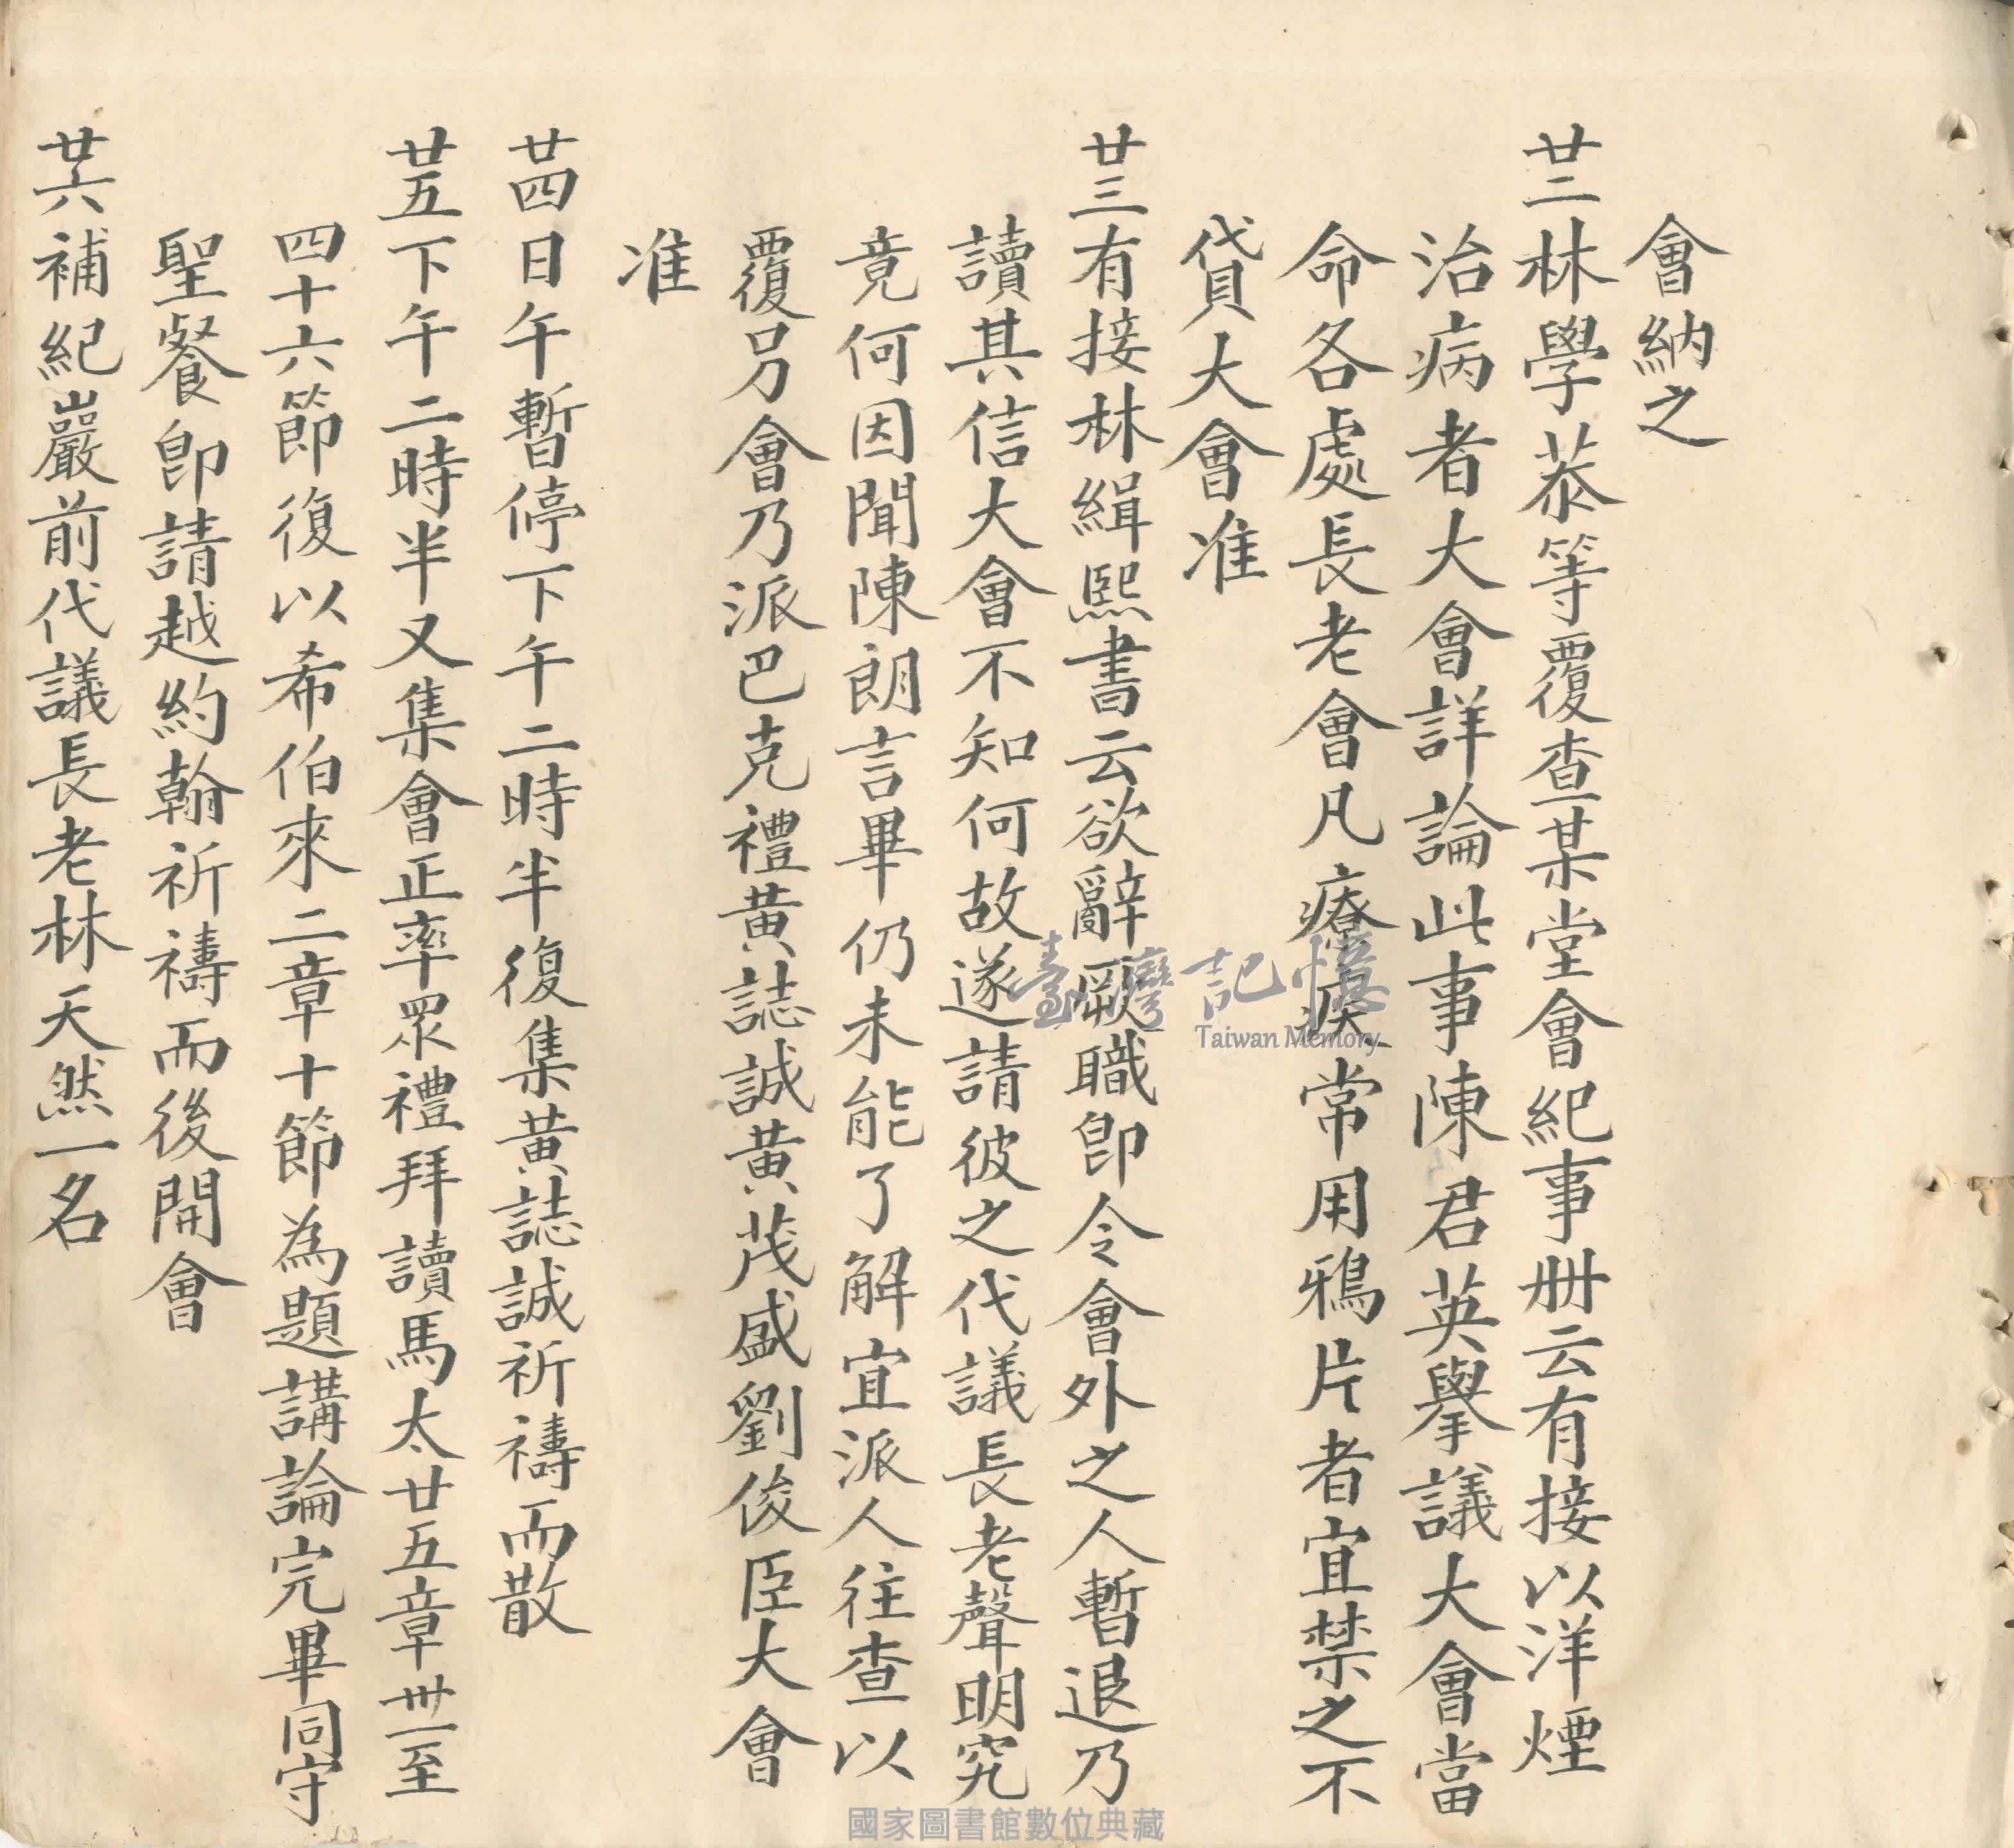 會納之
廿二林學恭等覆查某堂會紀事册云有接以洋煙
治病者大會詳論此事陳君英擧議大會當
命各處長老會凡療疾常用鴉片者宜禁之不
貸大會准
廿三有接林緝熙書云欲辭厥職卽令會外之人暫退乃
讀其信大會不知何故遂請彼之代議長老聲明究
竟何因聞陳朗言畢仍未能了解宜派人往查以
覆另會乃派巴克禮黃誌誠黃茂盛劉俊臣大會
准
廿四日午暫停下午二時半復集黃誌誠祈禱而散
廿五下午二時半又集會正率眾禮拜讀馬太廿五章卅一至
四十六節復以希伯來二章十節為題講論完畢同守
聖餐卽請越約翰祈禱而後開會
廿六補紀巖前代議長老林天然一名
臺灣記憶
Taiwan Memory
國家圖書館數位典藏